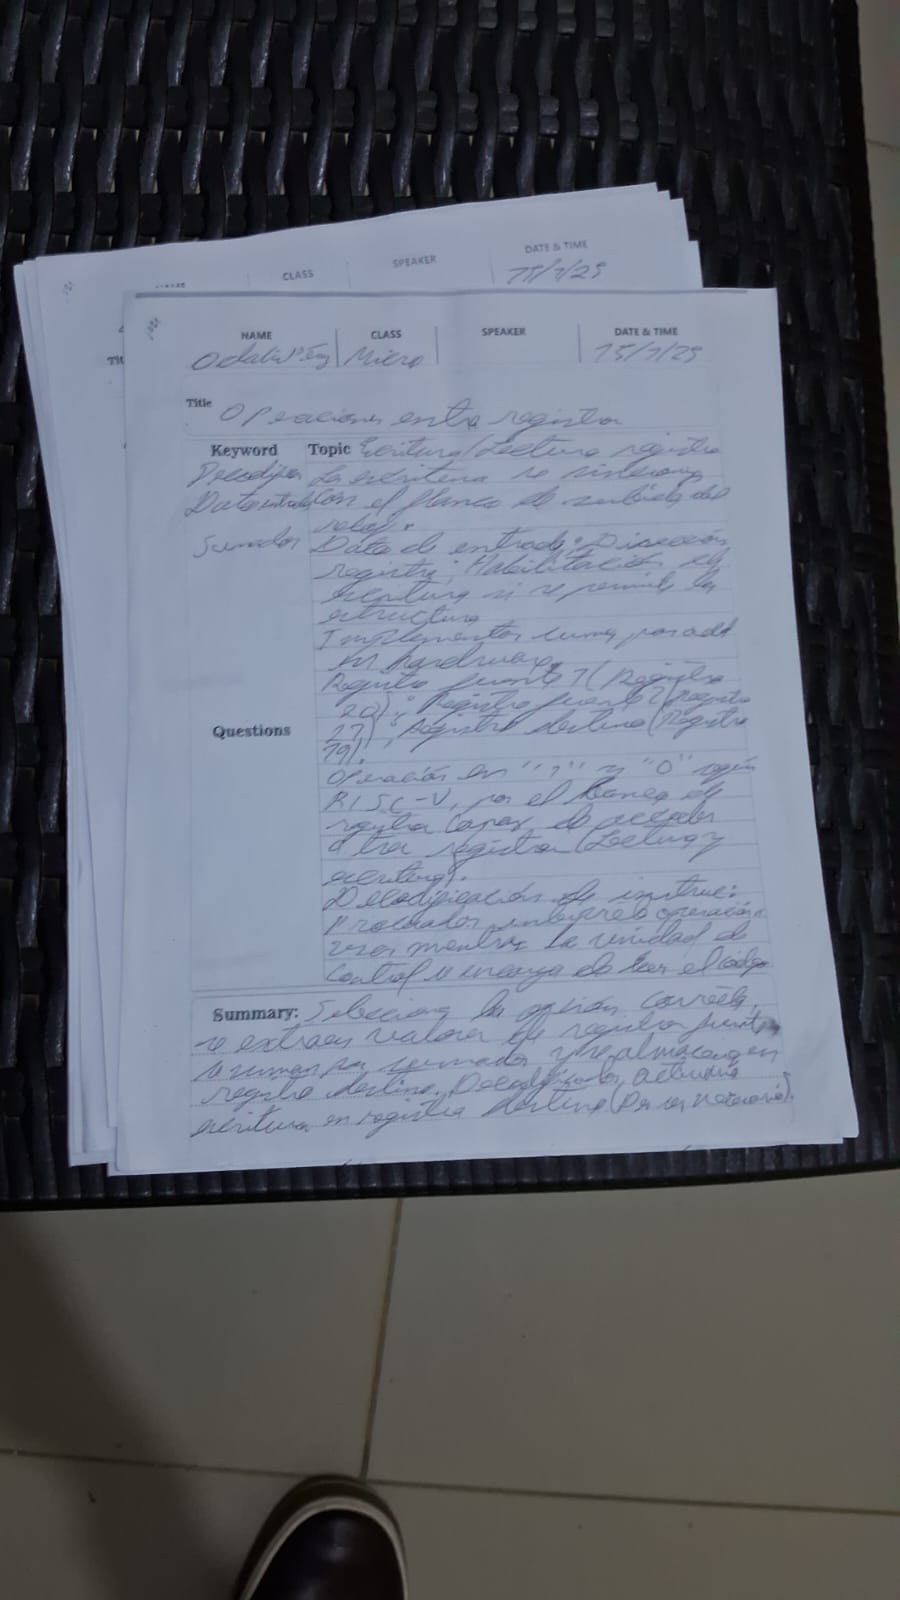 CLASS
SPEAKER
DATE & TIME
15/1/25
NAME
CLASS
SPEAKER
DATE & TIME
Micro
15/1/25
Title
Operaciones entre registros
Keyword
Topic Escritura/Lectura registro
La escritura se sincroniza
Data entrada
con el flanco de subida del
reloj.
Sumador
Data de entrada; Dirección
registro; Habilitación de
escritura si se permite la
estructura
Implementar suma por add
en hardware
Registro fuente 1 (Registro
20); Registro fuente 2 (Registro
Questions
, Registro destino (Registro
19).
Operación en "1" y "0" según
RISC-V, por el banco de
registro capaz de acceder
a tres registros (Lectura y
escritura).
Decodificación de instruc:
Procesador operación
mientras la unidad de
control se encarga de leer el código
Summary: Selecciona la opción correcta,
se extraen valores de registro fuente
se suman por sumador y se almacena en
registro destino. Decodificador
escritura en registro destino (De ser necesario).